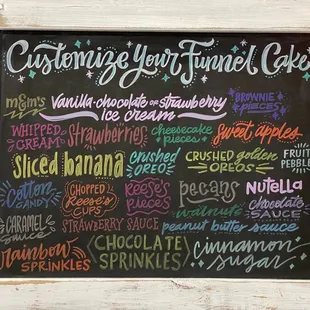 Customize Your Funnel Cake
m&m's
Vanilla-chocolate or strawberry
ice cream
BROWNIE
PIECES
WHIPPED
CREAM
Strawberries
cheesecake
pieces
Sweet apples
Sliced banana
crushed
OREOS
CRUSHED golden
OREOS
FRUITY
PEBBLE
Cotton
CANDY
CHOPPED
Reese's
CUPS
Reese's
PIECES
pecans
walnuts
Nutella
chocolate
SAUCE
CARAMEL
sauce
STRAWBERRY SAUCE
peanut butter sauce
rainbow
SPRINKLES
CHOCOLATE
SPRINKLES
cinnamon
sugar